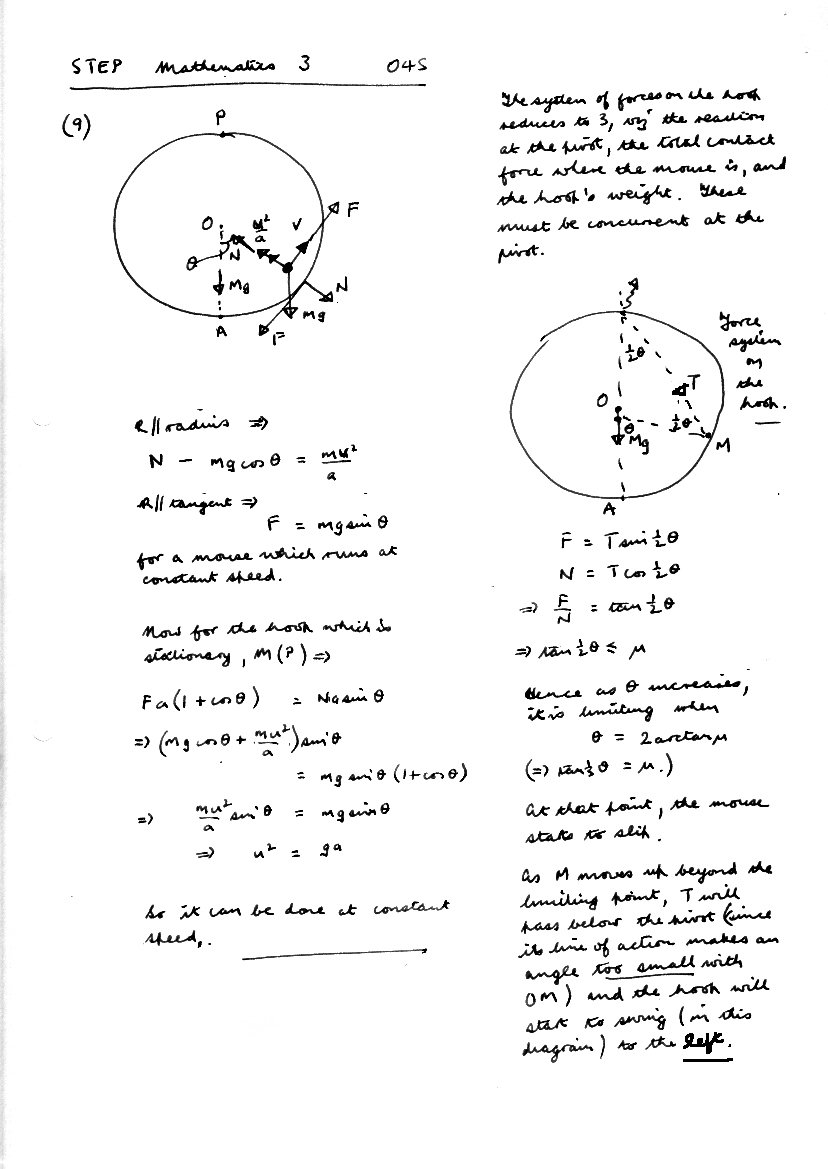 STEP Mathematics 3 04S
(9)
P
O
θ
N
u²/a
V
F
Mg
A
F
mg
N
R // radius ⇒
N - mg cos θ = mu²/a
R // tangent ⇒
F = mg sin θ
for a mouse which runs at
constant speed.
Now for the hoop which is
stationary, M(P) ⇒
Fa(1 + cos θ) = Na sin θ
⇒ (mg cos θ + mu²/a) sin θ
= mg sin θ (1 + cos θ)
⇒ mu²/a sin θ = mg sin θ
⇒ u² = ga
So it can be done at constant
speed.
The system of forces on the hoop
reduces to 3, viz the reaction
at the pivot, the total contact
force where the mouse is, and
the hoop's weight. These
must be concurrent at the
pivot.
S
½θ
T
O
θ
Mg
½θ
M
A
Force
system
on
the
hoop.
F = T sin ½θ
N = T cos ½θ
⇒ F/N = tan ½θ
⇒ tan ½θ ≤ μ
Hence as θ increases,
it is limiting when
θ = 2 arctan μ
(⇒ tan ½θ = μ.)
At that point, the mouse
starts to slip.
As M moves up beyond the
limiting point, T will
pass below the pivot (since
its line of action makes an
angle too small with
OM) and the hoop will
start to swing (in this
diagram) to the left.